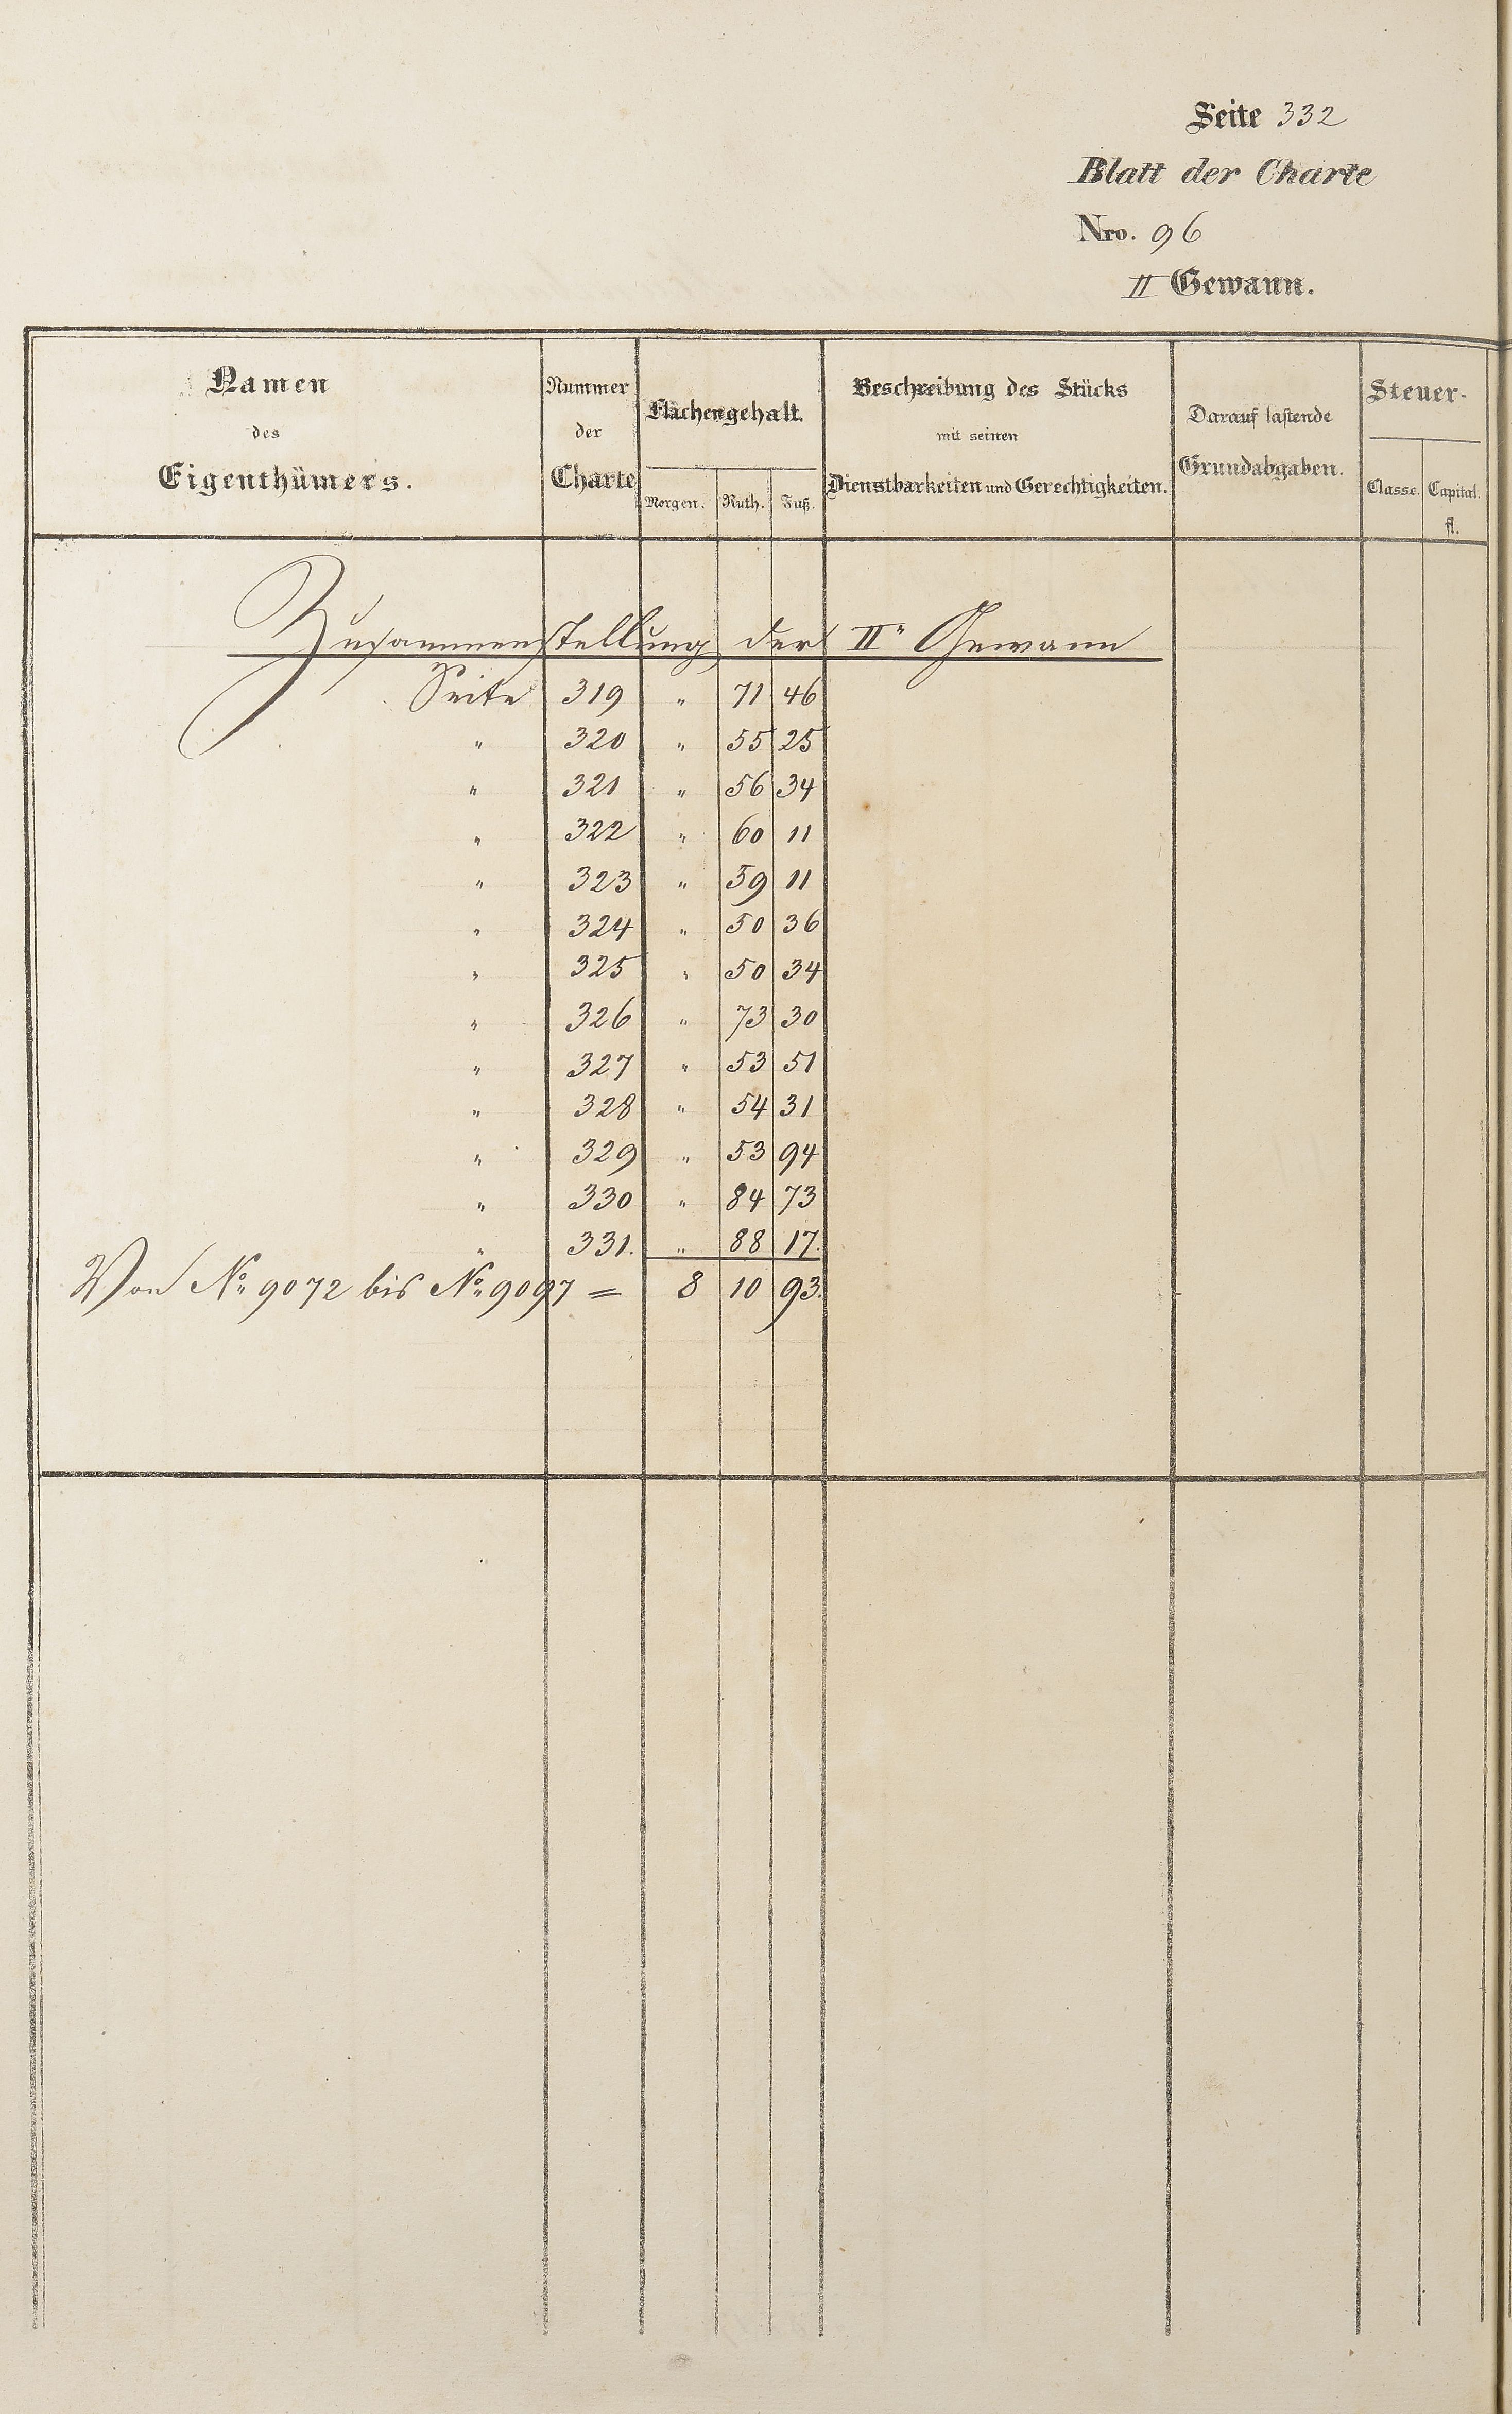 Seite 332
Blatt der Charte
Nro. 96
II Gewann.
Namen des Eigenthümers.
Nummer der Charte
Flächengehalt.
Morgen. Ruth. Fuß.
Beschreibung des Stücks mit seinen Dienstbarkeiten und Gerechtigkeiten.
Darauf lastende Grundabgaben.
Steuer-
Classe. Capital.
fl.
Zusammenstellung der IIr Gewann
Seite 319 " 71 46
" 320 " 55 25
" 321 " 56 34
" 322 " 60 11
" 323 " 59 11
" 324 " 50 36
" 325 " 50 34
" 326 " 73 30
" 327 " 53 51
" 328 " 54 31
" 329 " 53 94
" 330 " 84 73
" 331. " 88 17.
Von No 9072 bis No 9097 = 8 10 93.